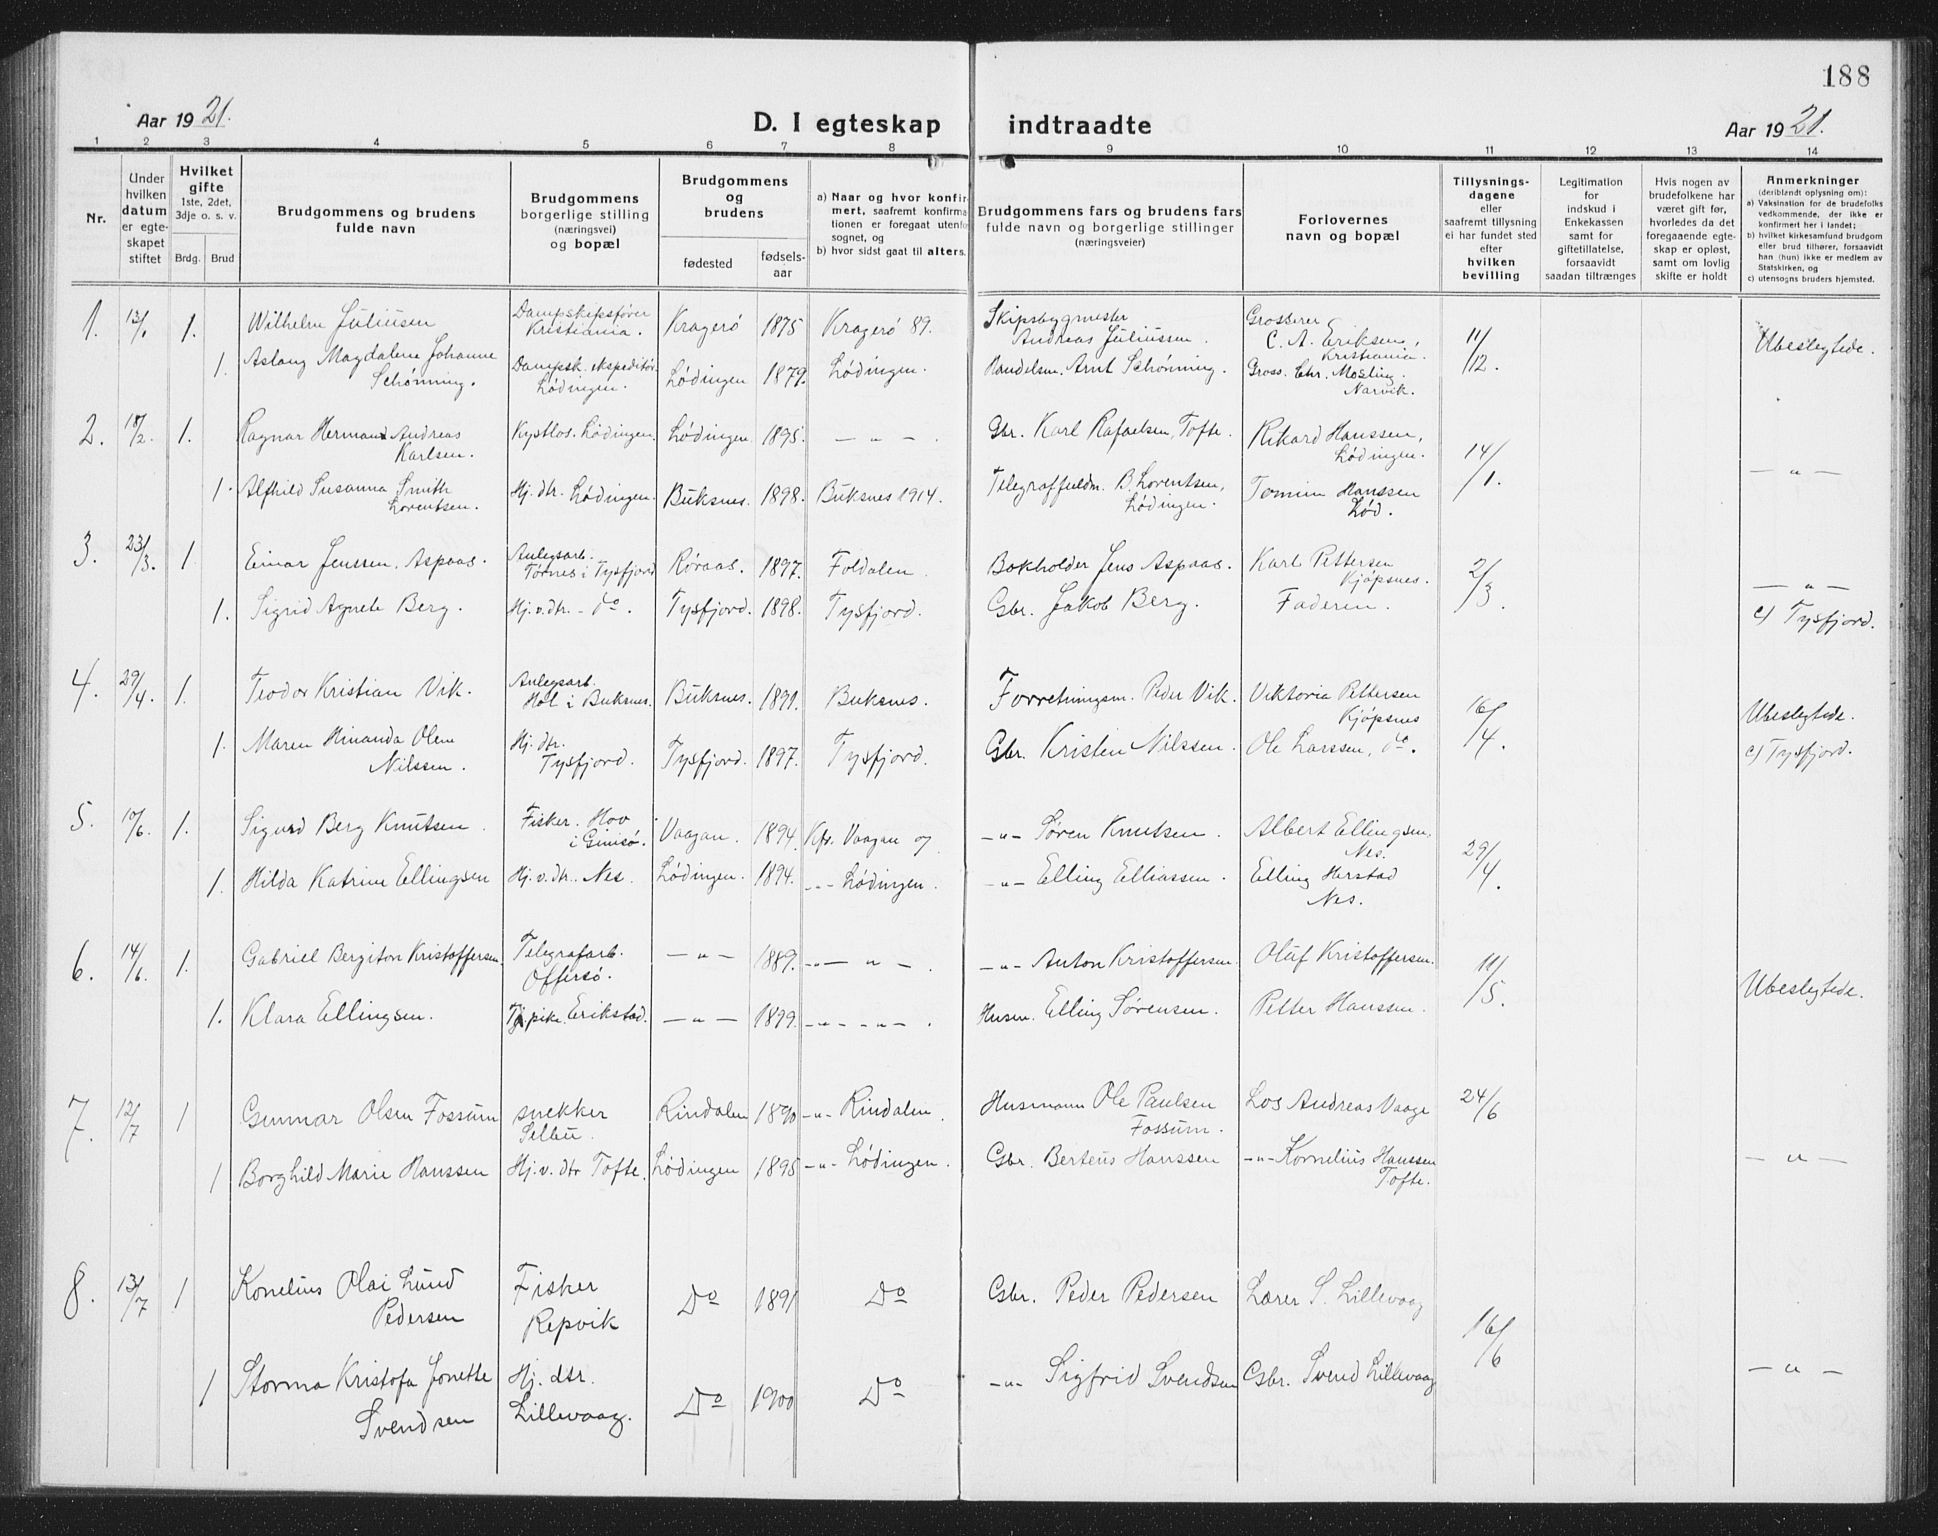 188
Aar 1921.
D. I egteskap
indtraadte
Aar 1921.
1 2 3 4 5 6 7 8 9 10 11 12 13 14
Nr.
Under
hvilken
datum
er egte-
skapet
stiftet
Hvilket
gifte
1ste, 2det,
3dje o. s. v.
Brdg. Brud
Brudgommens og brudens
fulde navn
Brudgommens
borgerlige stilling
(næringsvei)
og bopæl
Brudgommens
og
brudens
fødested
fødsels-
aar
a) Naar og hvor konfir-
mert, saafremt konfirma-
tionen er foregaat utenfor
sognet, og
b) hvor sidst gaat til alters.
Brudgommens fars og brudens fars
fulde navn og borgerlige stillinger
(næringsveier)
Forlovernes
navn og bopæl
Tillysnings-
dagene
eller
saafremt tillysning
ei har fundet sted
efter
hvilken
bevilling
Legitimation
for
indskud i
Enkekassen
samt for
giftetillatelse,
forsaavidt
saadan tiltrænges
Hvis nogen av
brudefolkene har
været gift før,
hvorledes da det
foregaaende egte-
skap er opløst,
samt om lovlig
skifte er holdt
Anmerkninger
(deriblandt oplysning om):
a) Vaksination for de brudefolks
vedkommende, der ikke er
konfirmert her i landet;
b) hvilket kirkesamfund brudgom
eller brud tilhører, forsaavidt
han (hun) ikke er medlem av
Statskirken, og
c) utensogns bruders hjemsted.
1. 13/1 1. Wilhelm Juliusen Dampskipsfører Kristiania. Kragerø 1875 Kragerø 89. Skipsbygmester Andreas Juliussen. Grosserer C. A. Eriksen, Kristiania. 11/12. Ubeslegtede.
1. Aslaug Magdalene Johanne Schønning. Dampsk. ekspeditør Lødingen. Lødingen 1879. Lødingen. Handelsm. Arnt Schønning. Gross. Chr. Mosling. Narvik.
2. 18/2. 1. Ragnar Herman Andreas Karlsen. Kystlos. Lødingen. Lødingen 1895. — " — . Gbr. Karl Rafaelsen, Tofte. Rikard Hanssen, Lødingen. 14/1. — " —
1. Alfhild Susanna Smith Lorentsen. Hj. dtr. Lødingen. Buksnes. 1898. Buksnes 1914. B. Lorentsen, Lødingen. Hanssen Lød.
3. 23/3. 1. Einar Jenssen Aspaas. Anlegsarb. Tørnes i Tysfjord Røraas. 1897. Foldalen. Bokholder Jens Aspaas. Karl Pettersen Kjøpsnes. 2/3. — " —
1. Sigrid Agnete Berg. Hj. v. dtr. - do. Tysfjord. 1898. Tysfjord. Gbr. Jakob Berg. Faderen. c) Tysfjord.
4. 29/4. 1. Teodor Kristian Vik. Anlegsarb. Hol i Buksnes. Buksnes. 1891. Buksnes. Forretningsm. Peder Vik. Viktoria Pettersen Kjøpsnes 16/4. Ubeslegtede.
1. Maren Hinanda Oline Nilssen. Hj. dtr. Tysfjord. Tysfjord. 1897. Tysfjord. Gbr. Kristen Nilssen. Ole Larssen, do. c) Tysfjord.
5. 10/6. 1. Sigurd Berg Knutsen. Fisker. Hov i Gimsø. Vaagan. 1894. Kfr. Vaagan og — " — Søren Knutsen. Albert Ellingsen. Nes. 29/4.
1. Hilda Katrine Ellingsen Hj. v. dtr. Nes. Lødingen. 1894. - " - Lødingen. — " — Elling Elliassen. Elling Herstad Nes.
6. 14/6. 1. Gabriel Bergiton Kristoffersen. Telegrafarb. Offersø. — " — 1889. - " — " — . — " — Anton Kristoffersen. Olaf Kristoffersen. 11/5. Ubeslegtede.
1. Klara Ellingsen. Tj. pike. Erikstad. — " — 1899. - " - - " - . Husm. Elling Sørensen. Petter Hanssen.
7. 12/7 1 Gunnar Olsen Fossum snekker Selbu. Rindalen 1890 - " - Rindalen. Husmann Ole Paulsen Fossum. Los Andreas Vaage 24/6
1 Borghild Marie Hanssen Hj. v. dtr Tofte. Lødingen 1895 - " - Lødingen. Gbr. Berteus Hanssen - " - Kornelius Hanssen Tofte. — " —
8. 13/7 1 Konelius Olai Lund Pedersen Fisker Repvik Do 1891 Do Gbr. Peder Pedersen Lærer S. Lillevaag 16/6
1 Storma Kristofa Jonette Svendsen Hj. dtr. Lillevaag. Do 1900 Do — " — Sigfrid Svendsen Gbr. Svend Lillevaag — " —